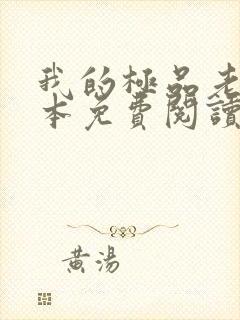 我的極品老
本免費閱讀
黃湯